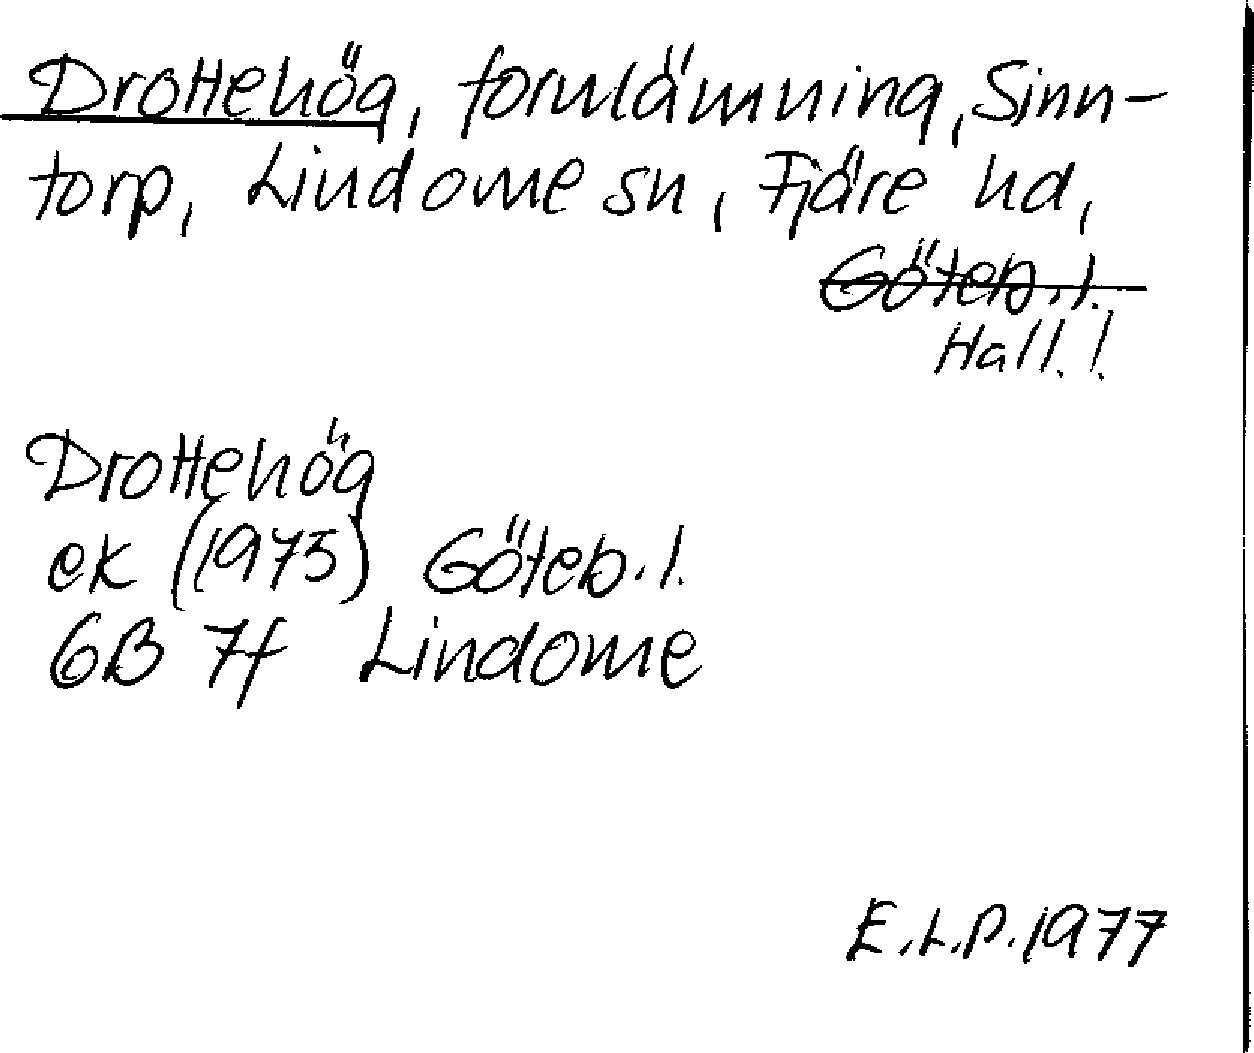 Drottehög, fornlämning, Sinn-
torp, Lindome sn, Fjäre hd,
Göteb. l.
Hall. !
Drottehög
ek (1975) Göteb. l.
6B 7f Lindome
E.L.P. 1977